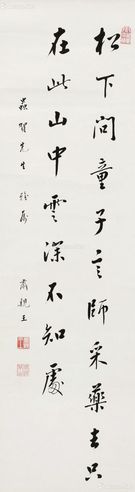 松下問童子言師采藥去只
在此山中雲深不知處
先生
肅親王